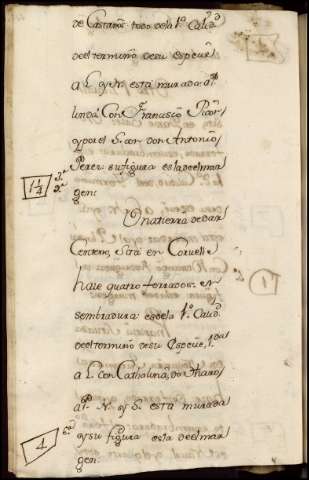 de Castaños todo de la 1ª Calidᵈ
de el termino de su Especie,
a L. y N. está murada, aP.
linda Con Francisco Pior
y por el S. con don Antonio
Perez su figura es la del mar
gen:
Una tierra de dar
Centeno, Sita en Coruelle
haze quatro ferrados en
sembradura es de la 1ª Calidᵈ
de el termino de su Especie, Lda
a L. con Cathalina do
a P. N. y S. está murada
y su figura es la de el mar
gen:
1 1/4
4